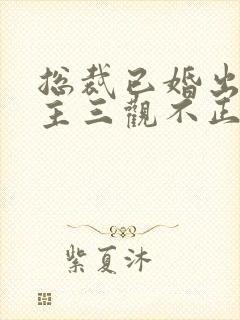 总裁已婚出
主三觀不正
紫夏沐